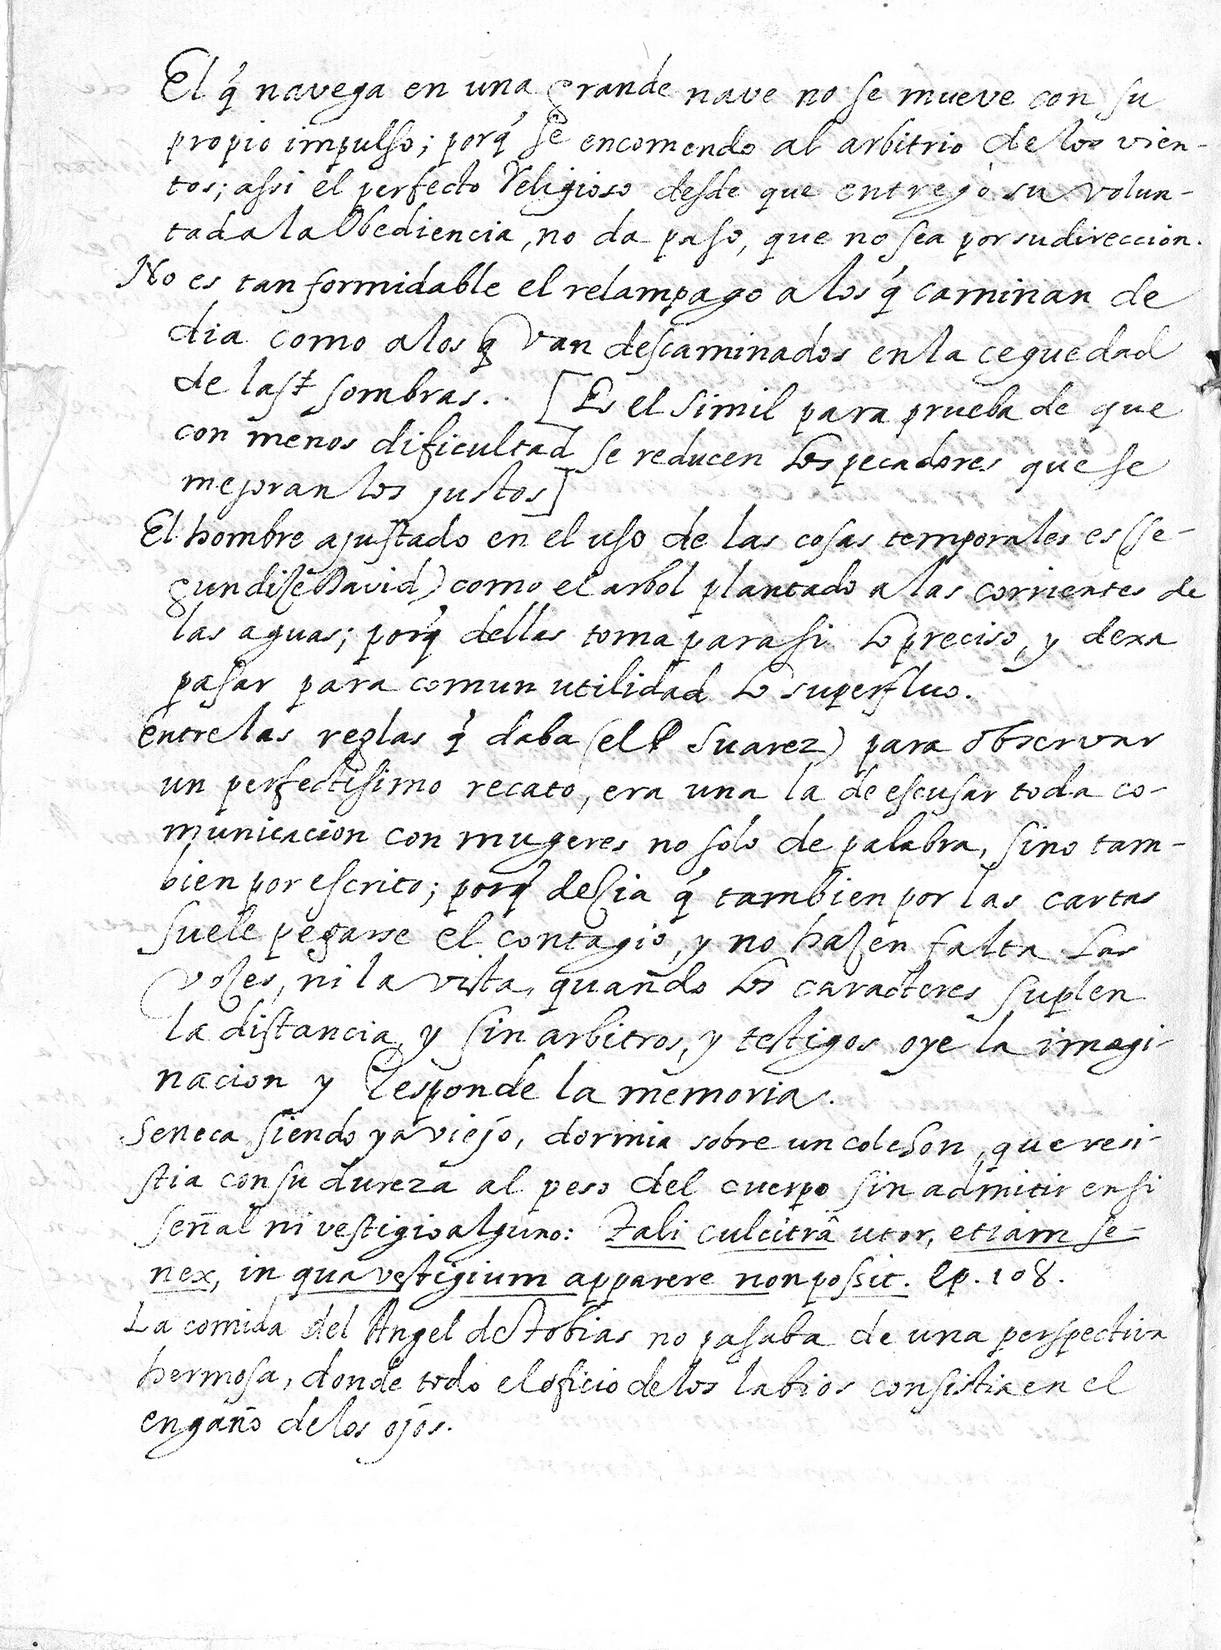 El q̃ navega en una grande nave no se mueve con su
propio impulso; porq̃ se encomendo al arbitrio de los vien-
tos; assi el perfecto Religioso desde que entregò su volun-
tad a la Obediencia, no da paso, que no sea por su direccion.
No es tan formidable el relampago a los q̃ caminan de
dia como a los q̃ van descaminados en la ceguedad
de las sombras. [Es el simil para prueba de que
con menos dificultad se reducen los pecadores que se
mejoran los justos]
El hombre ajustado en el uso de las cosas temporales es (se-
gun dize David) como el arbol plantado a las corrientes de
las aguas; porq̃ dellas toma para si lo preciso, y dexa
pasar para comun utilidad lo superfluo.
Entre las reglas q̃ daba (el P. Suarez) para observar
un perfectisimo recato, era una la de escusar toda co-
municacion con mugeres no solo de palabra, sino tam-
bien por escrito; porq̃ dezia q̃ tambien por las cartas
suele pegarse el contagio, y no hazen falta las
vozes, ni la vista, quando los caracteres suplen
la distancia, y sin arbitros, y testigos oye la imagi-
nacion y responde la memoria.
Seneca siendo ya viejo, dormia sobre un colchon, que resi-
stia con su dureza al peso del cuerpo sin admitir en si
señal ni vestigio alguno: Tali culcitrâ utor, etiam se-
nex, in qua vestigium apparere non possit. Ep. 108.
La comida del Angel de Tobias no pasaba de una perspectiva
hermosa, donde todo el oficio de los labios consistia en el
engaño de los ojos.